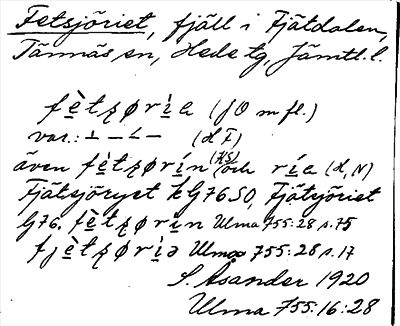 Fetsjöriet, fjäll i Fjätdalen,
Tännäs sn, Hede tg, Jämtl. l.
fè̱tʂørì̱a (JO m fl.)
var.: ⊥ – ∠ – (d F)
även fè̱tʂørí̱n (KS) och rí̱a (d, N)
Fjätsjöryet k G76 SO, Fjätsjöriet
G76. fè̱tʂørì̱n Ulma 755:28 s. 75
fjè̱tʂørì̱ə Ulma 755:28 s. 17
S. Åsander 1920
Ulma 755:16:28